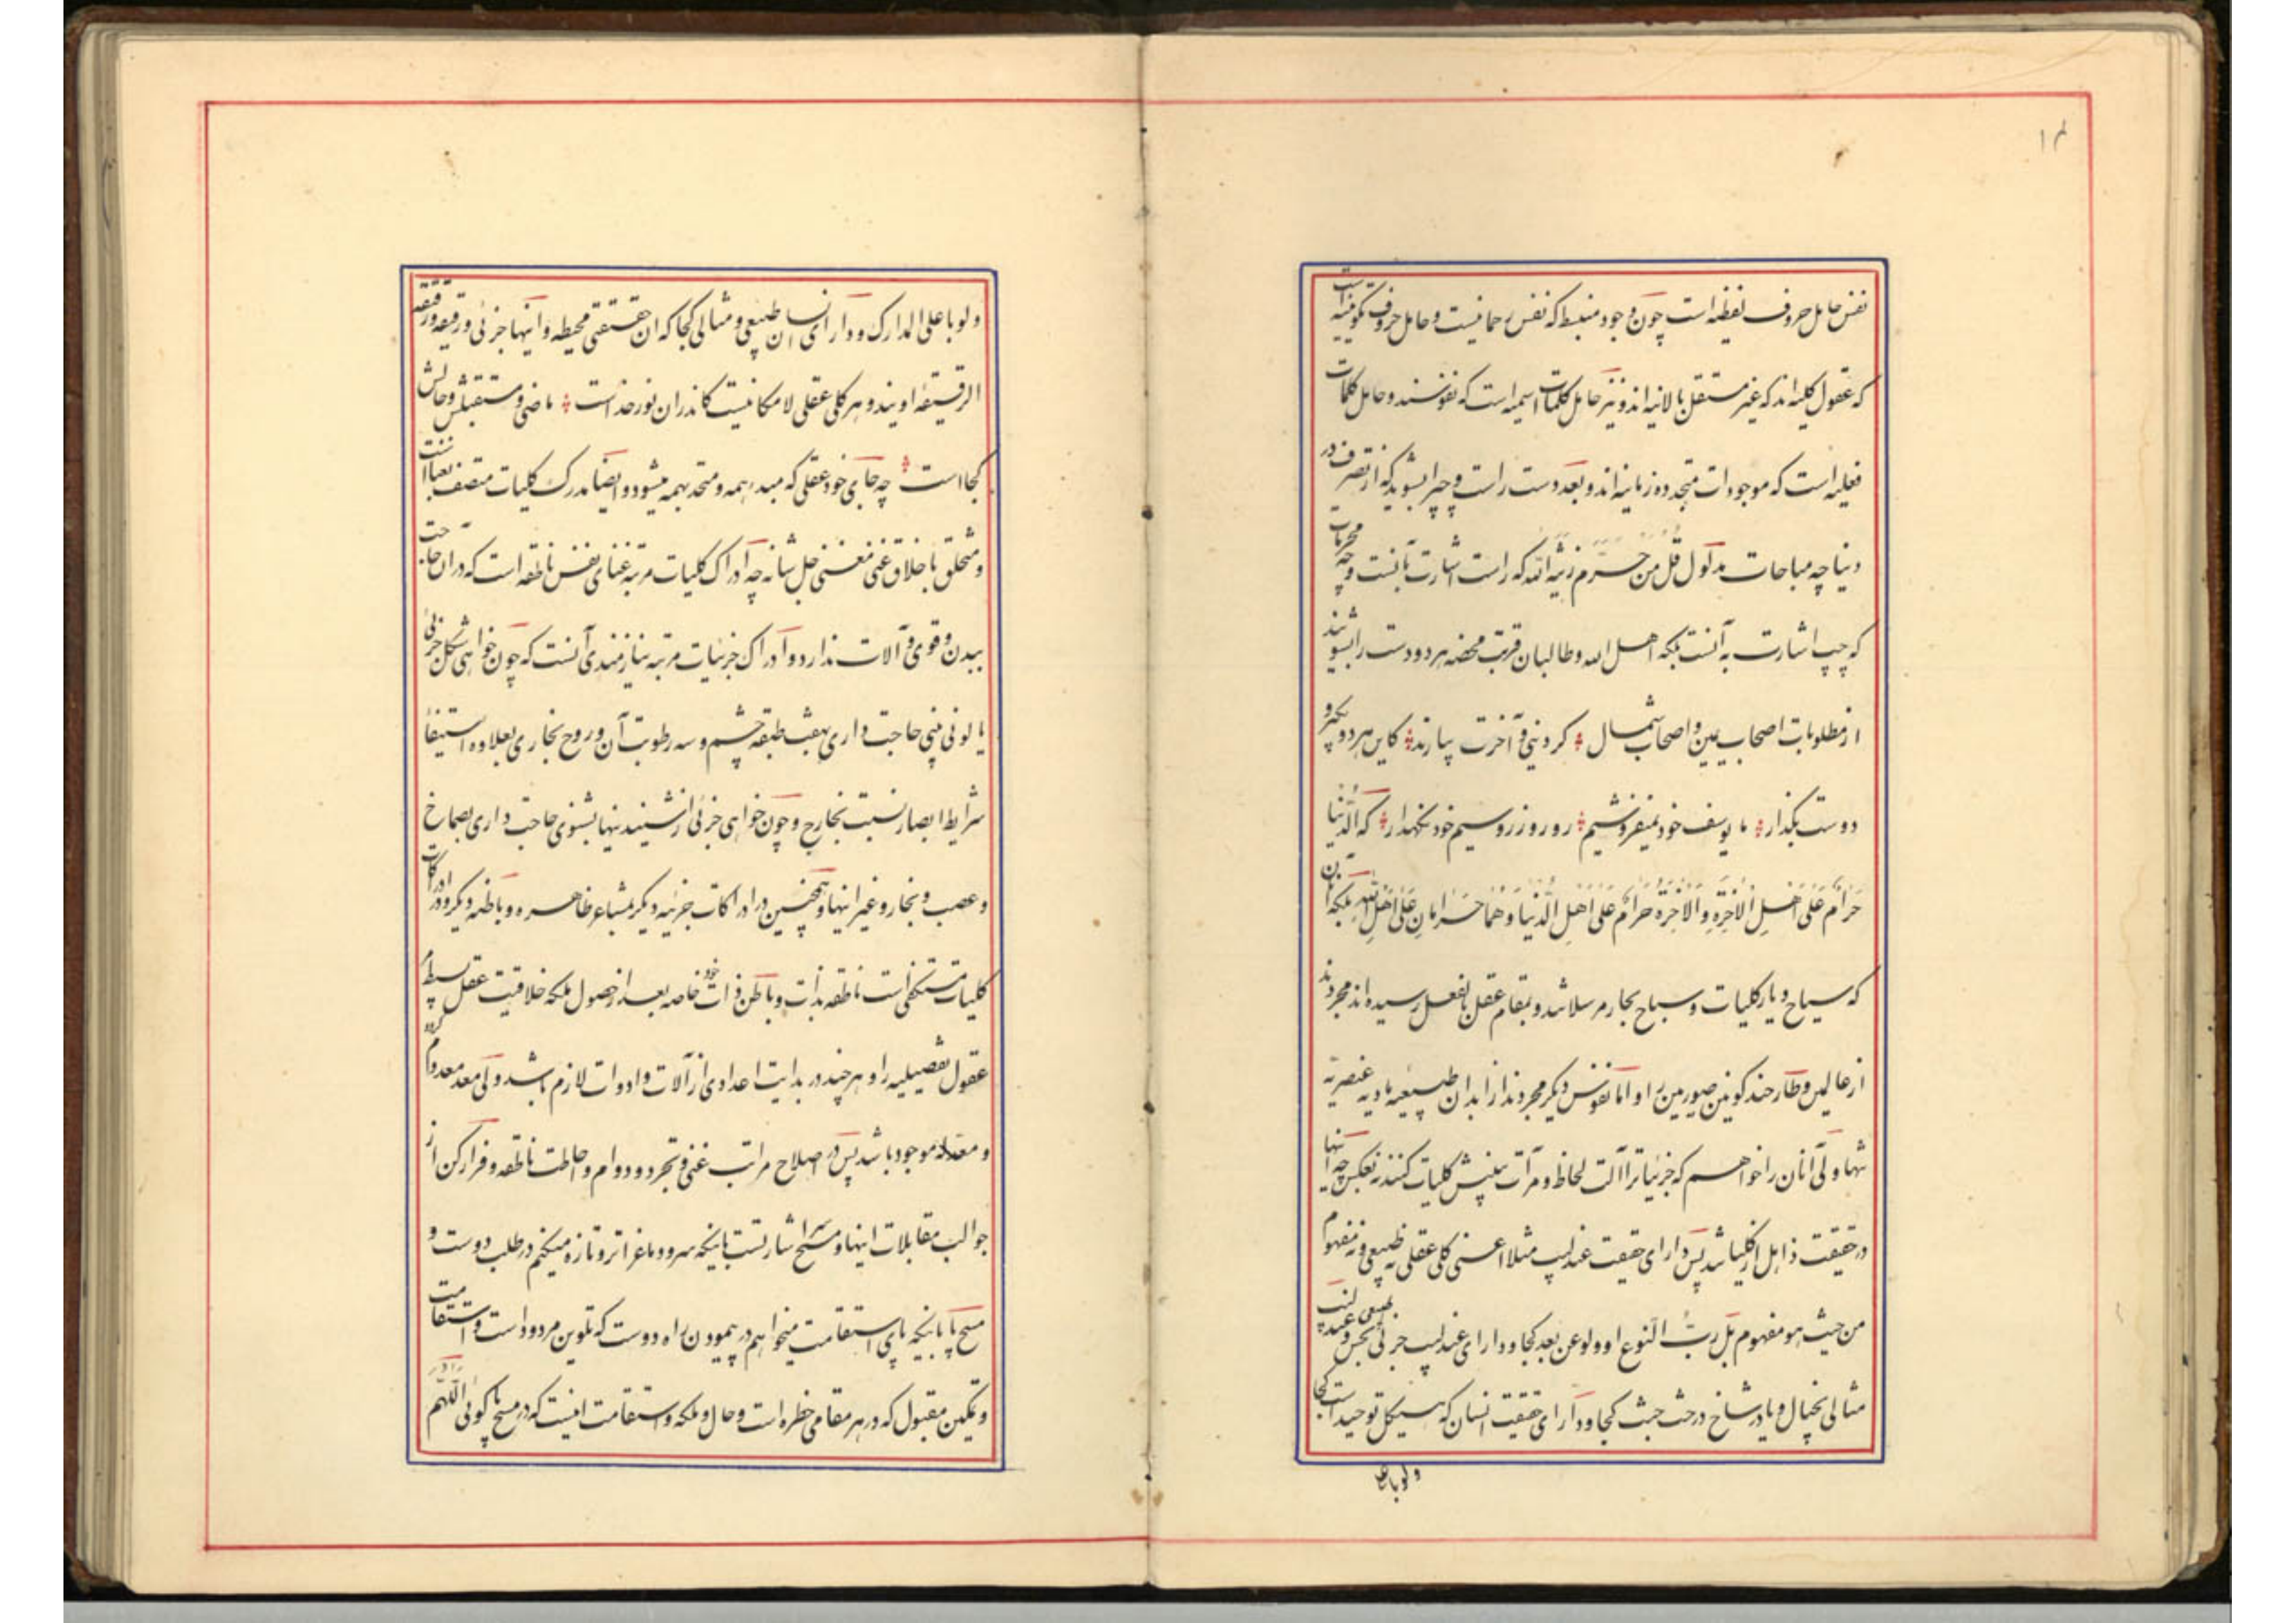 ۱۴
نفس حامل حروف لفظیه است چون وجود منبسط که نفس رحمانیست و حامل حروف تکوینیه است
که عقول کلیه‌اند که غیر مستقل بالانیه‌اند و نیز حامل کلمات اسمیه است که نفوسند و حامل کلمات
فعلیه است که موجودات متجدده زمانیه‌اند و بعد دست راست و چپ را بشوید که از تصرف در
دنیا چه مباحات مدلول قل من حرم زینة الله که راست اشارت بآنست و چه محرمات
که چپ اشارت به آنست بلکه اهل الله و طالبان قربت محضه هر دو دست را بشویند
از مطلوبات اصحاب یمین و اصحاب شمال کر دنیی و آخرت بیارند کاین هر دو بگیر و
دوست بگذار ما یوسف خود نمیفروشیم رو روز زر و سیم خود نگهدار که الدُّنیا
حَرامٌ عَلی اَهلِ الآخِرَةِ وَالآخِرَةُ حَرامٌ عَلی اَهلِ الدُّنیا وَهُما حَرامانِ عَلی اَهلِ اللهِ بلکه آنان
که سیاح دیار کلیات و سباح بحار مرسلاتند و بمقام عقل بالفعل رسیده‌اند مجردند
از عالمین و طار حند کونین صوریین را و اما نفوس دیگر مجردند از ابدان طبیعیه مادیه عنصریه
تنها ولی آنان را خواهم که جزئیاترا آلت لحاظ و مرآت بینش کلیات کنند نه بعکس چه اینها
در حقیقت ذاهل از کلیاتند پس دارای حقیقت عندلیب مثلا اعنی کلی عقلی نه طبیعی و نه مفهوم
من حیث هو مفهوم بل ربّ النوع او ولو عن بعد کجا و دارای عندلیب جزئی بحس و عندلیب طبیعی
مثالی بخیال و یا در شاخ درخت جثث کجا و دارای حقیقت انسان که هیکل توحید است کجا
ولو باعلی
ولو باعلی المدارک و دارای انسان طبیعی و مثالی کجا که آن حقیقتی محیطه و اینها جزئی و رقیقه و رقیقة
الرقیقهٔ اویند و هر کلی عقلی لامکانیست کاندران نور خداست ماضی و مستقبلش و حالش
کجا است چه جای خود عقلی که مبدء همه و متحد بهمه میشود و ایضا مدرک کلیات متصف بصفات است
و متخلق باخلاق غنی مغنی جل شانه چه ادراک کلیات مرتبه غنای نفس ناطقه است که در آن حاجت
ببدن و قوی و آلات ندارد و ادراک جزئیات مرتبه نیازمندی آنست که چون خواهی شکل جزئی
یا لونی بینی حاجت داری بهفت طبقه چشم و سه رطوبت آن و روح بخاری بعلاوه استیفاء
شرایط ابصار نسبت بخارج و چون خواهی جزئی از شنیدنیها بشنوی حاجت داری بصماخ
و عصب و بخار و غیر اینها و همچنین در ادراکات جزئیه دیگر بمشاعر ظاهره و باطنه دیگر و در ادراکات
کلیات مستکفی است ناطقه بذات و باطن ذات خود خاصه بعد از حصول ملکه خلاقیت عقل بسیط مر
عقول تفصیلیه را و هر چند در بدایت اعدادی از آلات و ادوات لازم باشد ولی معد معدوم گردد
و معدله موجود باشد پس در اصلاح مراتب غنی و تجرد و دوام و احاطت ناطقه و فرار کن از
جوالب مقابلات اینها و مسح سر اشارتست باینکه سر و دماغ را تر و تازه میکنم در طلب دوست و
مسح پا باینکه پای استقامت میخواهم در پیمودن راه دوست که تلوین مردود است و استقامت
و تمکین مقبول که در هر مقامی خطره است و حال و ملکه و استقامت اینست که در مسح پا گوئی اللّهم